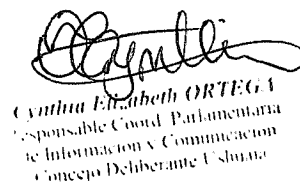 Cynthia Elizabeth ORTEGA
Responsable Coord. Parlamentaria
de Informacion y Comunicacion
Concejo Deliberante Ushuaia